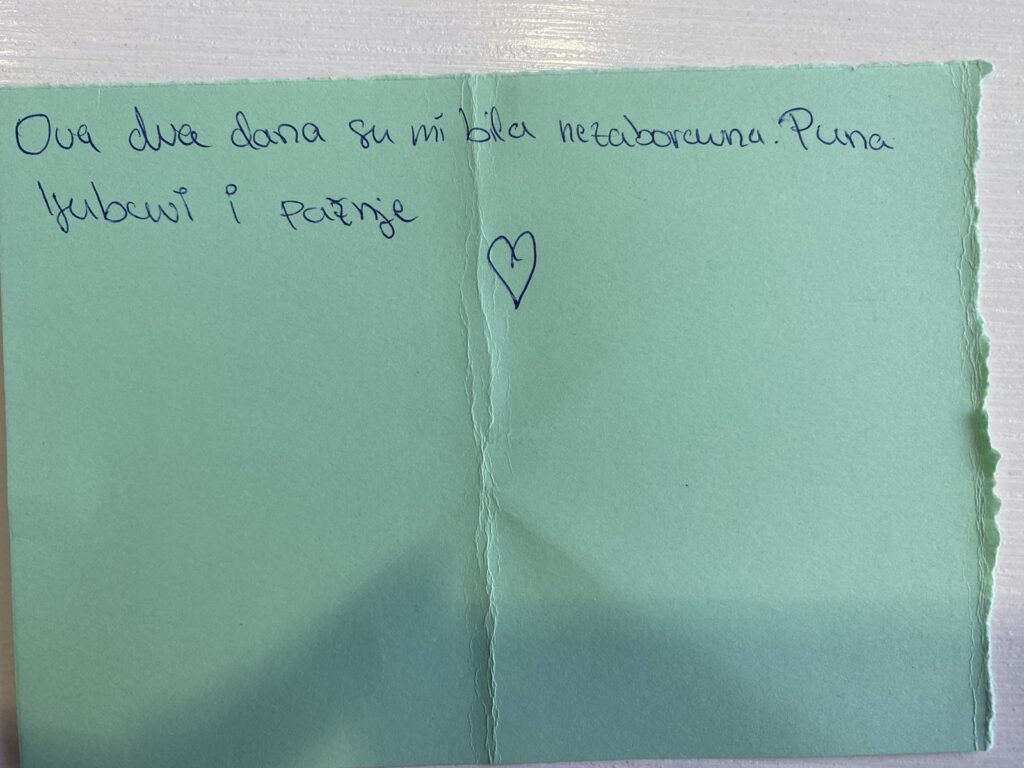 Ova dva dana su mi bila nezaboravna. Puna
ljubavi i pažnje